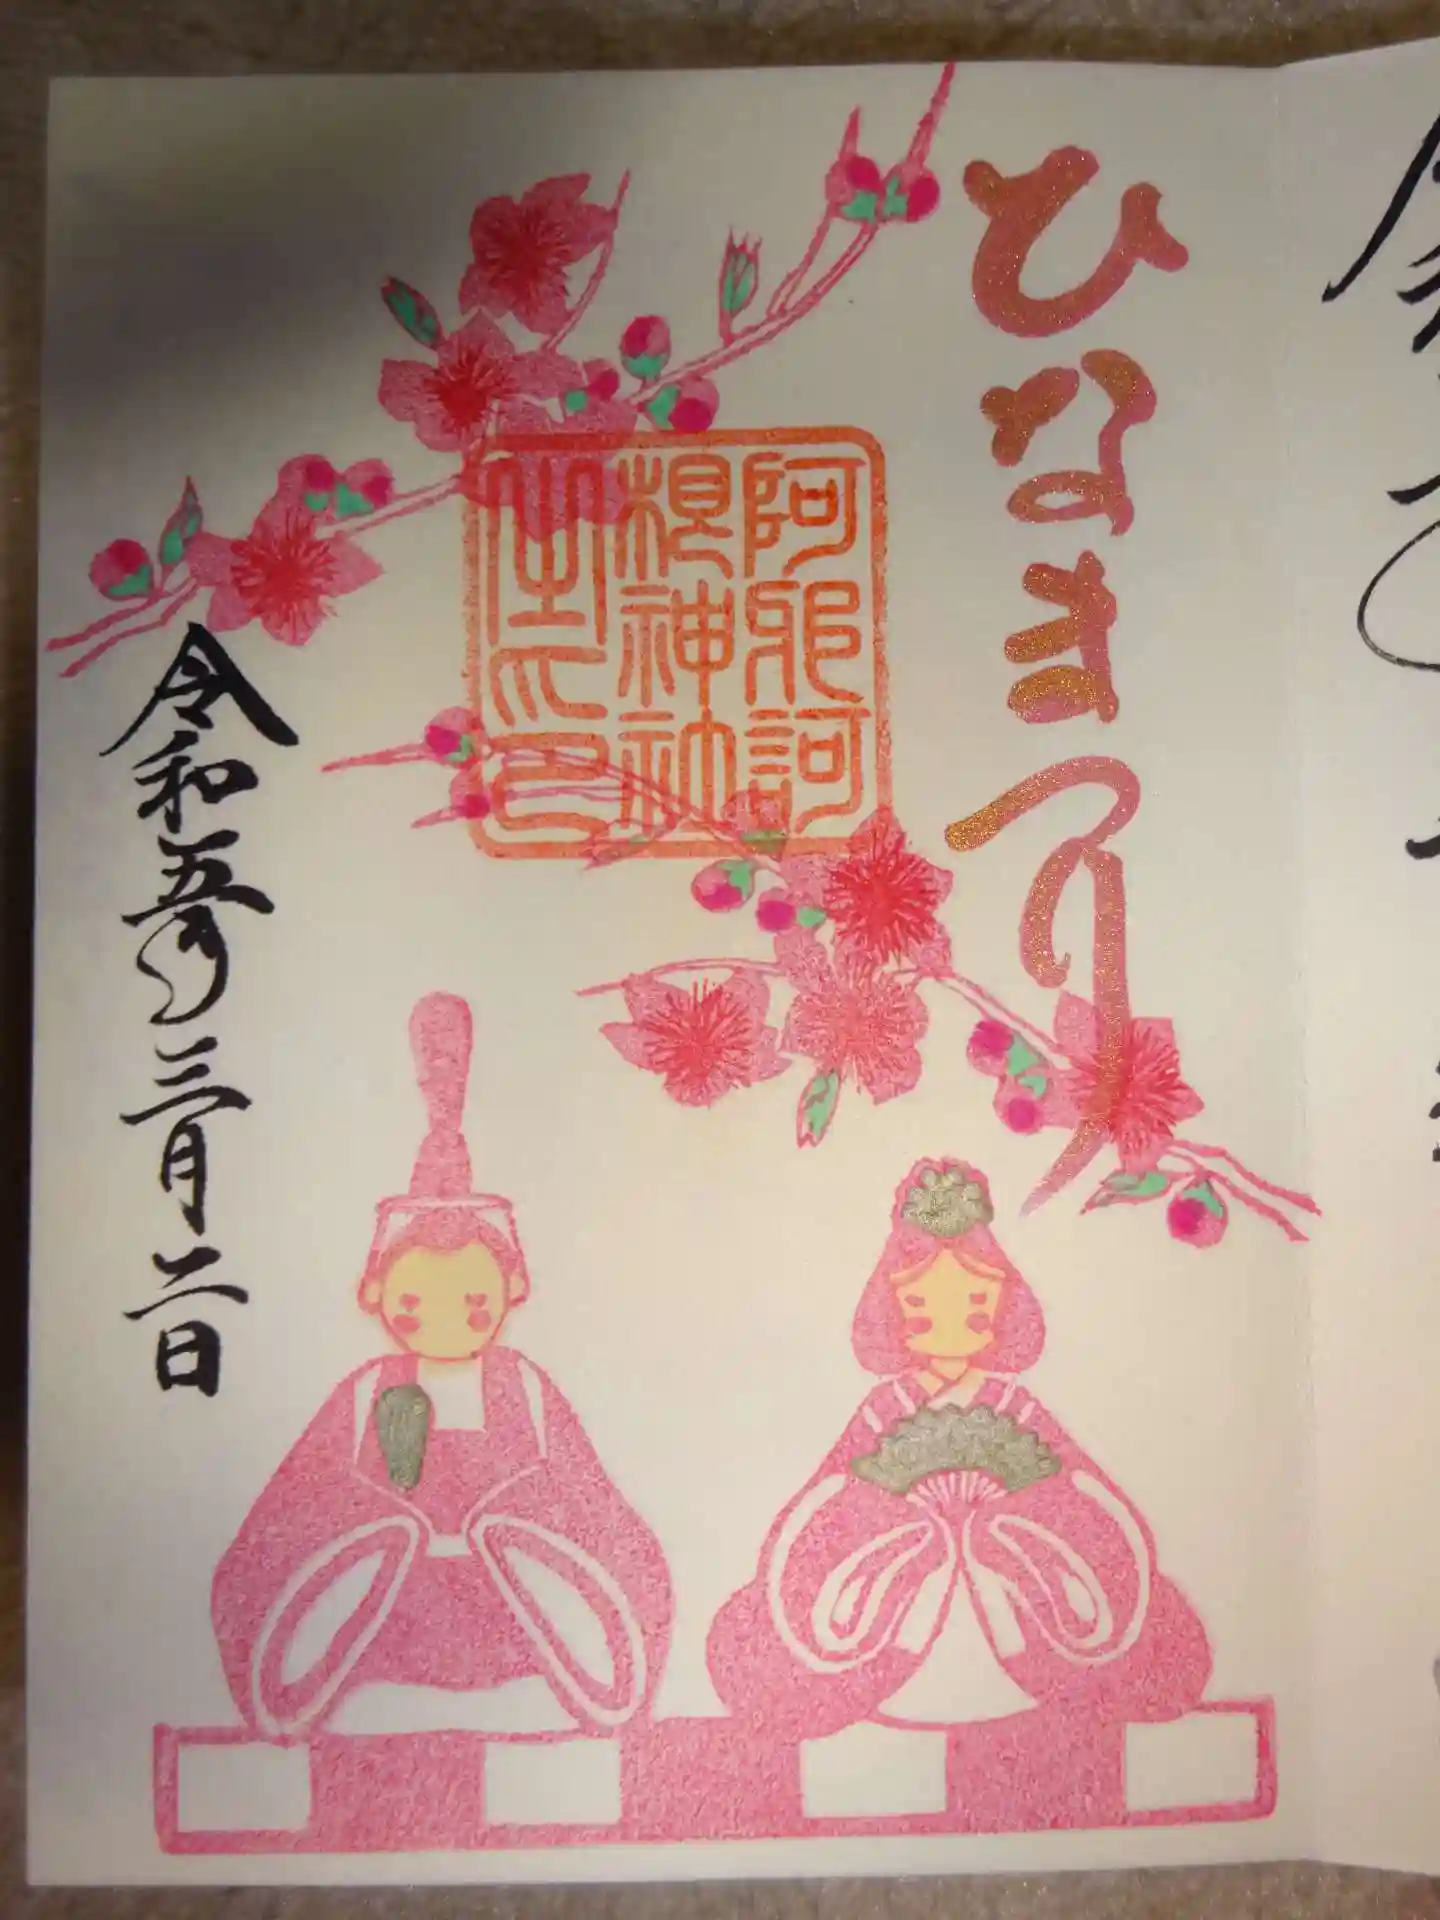 ひなまつり
阿邪訶
根神社
之印
令和五年三月二日